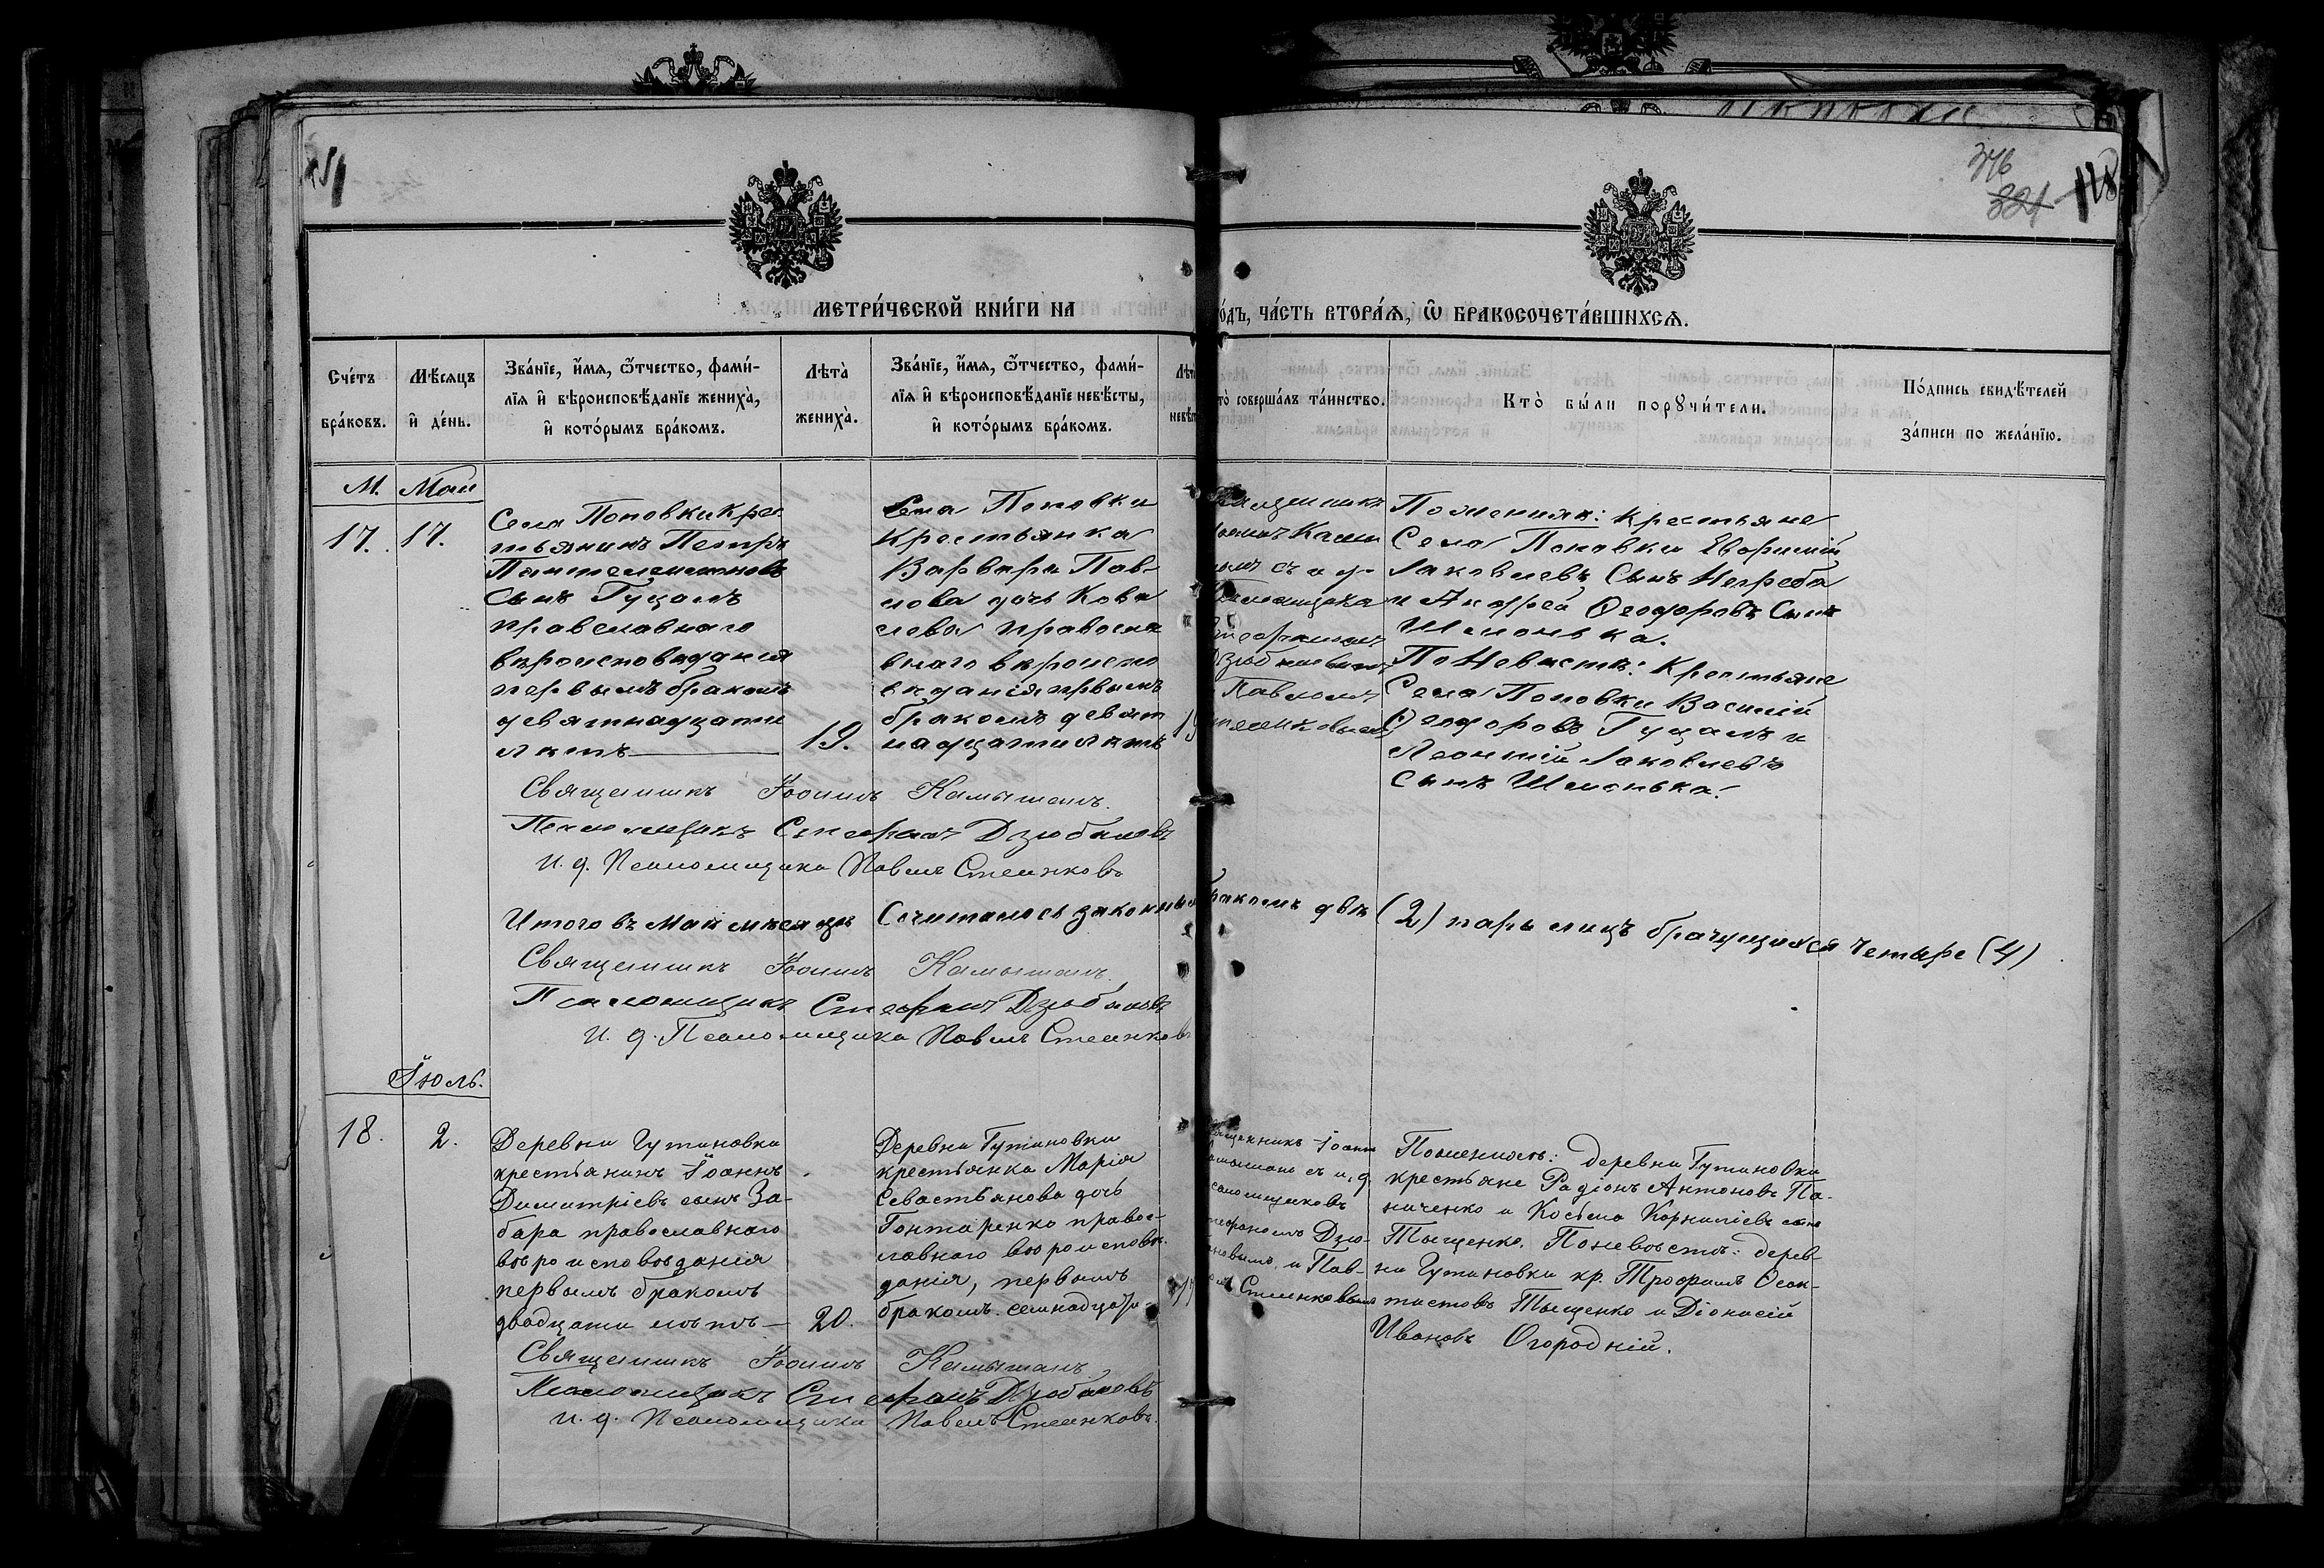 376
321
118
МЕТРИ́ЧЕСКОЙ КНИ́ГИ НА
О́ДЪ, ЧА́СТЬ ВТОРА́Я, Ѽ БРАКОСОЧЕТА́ВШИХСЯ.
Сче́тъ бра́ковъ.
Мѣ́сяцъ и҆ де́нь.
Зва́нїе, и҆́мя, ѻ҆́тчество, фами́-
лїя и҆ вѣроисповѣ́данїе жениха̀,
и҆ кото́рымъ бра́комъ.
Лѣта̀ жениха̀.
Зва́нїе, и҆́мя, ѻ҆́тчество, фами́-
лїя и҆ вѣроисповѣ́данїе невѣ́сты,
и҆ кото́рымъ бра́комъ.
Лѣт
невѣс
то̀ соверша́лъ та́инство.
Кто̀ бы́ли порꙋчи́тели.
По́дпись свидѣ́телей
за́писи по жела́нїю.
М.
Май
17.
17.
Села Поповки Крес
тьянинъ Петръ
Пантелеимоновъ
сынъ Гуцалъ
православнаго
вѣроисповѣданія
первымъ бракомъ
девятнадцати
лѣтъ
19.
Села Поповки
Крестьянка
Варвара Пав-
лова дочь Кова
лева правосла
внаго вѣроиспо
вѣданія првымъ
бракомъ девят
надцати лѣтъ
19
Священникъ
Іоаннъ Камы
съ и д
Псаломщика
Стефаномъ
Дзюбановымъ
Павломъ
Стеенковымъ
По женихѣ: Крестьяне
Села Поповки Евфимій
Іаковлевъ Сынъ Негреба
и Андрей Ѳеодоровъ Сынъ
Шелонька.
По Невѣстѣ: Крестьяне
Села Поповки Василій
Ѳеодоровъ Гуцалъ и
Леонтій Іаковлевъ
сынъ Шелонька.
Священникъ Іоаннъ Камышанъ.
Псаломщикъ Стефанъ Дзюбановъ
И. д. Псаломщика Павелъ Стеенковъ
Итого въ Маѣ мѣсяцѣ Сочиталось законнымъ бракомъ двѣ (2) пары лицъ брачущихся четыре (4)
Священникъ Іоаннъ Камышанъ
Псаломщикъ Стефанъ Дзюбановъ
И. д. Псаломщика Павелъ Стеенковъ
Іюль.
18.
2.
Деревни Гутиновки
крестьянинъ Іоаннъ
Димитріевъ сынъ За-
бара православнаго
вѣроисповѣданія
первымъ бракомъ
двадцати лѣтъ —
20.
Деревни Гутиновки
крестьянка Марія
Севастьянова дочь
Гонтаренко правос-
лавнаго вѣроисповѣ-
данія, первымъ
бракомъ семнадцати-
17
ященникъ Іоаннъ
амышанъ съ и, д
саломщиковъ
тефаномъ Дзю-
ановымъ, и Пав-
омъ Стеенковымъ
По женихѣ: деревни Гутиновки
крестьяне Радіонъ Антоновъ Па-
ниченко и Косьма Корниліевъ сынъ
Тыщенко. По невѣстѣ: дерев-
ни Гутиновки кр. Трофимъ Ѳеок-
тистовъ Тыщенко и Діонисій
Ивановъ Огородній.
Священникъ Іоаннъ Камышанъ
Псаломщикъ Стефанъ Дзюбановъ
И. д. Псаломщика Павелъ Стеенковъ.